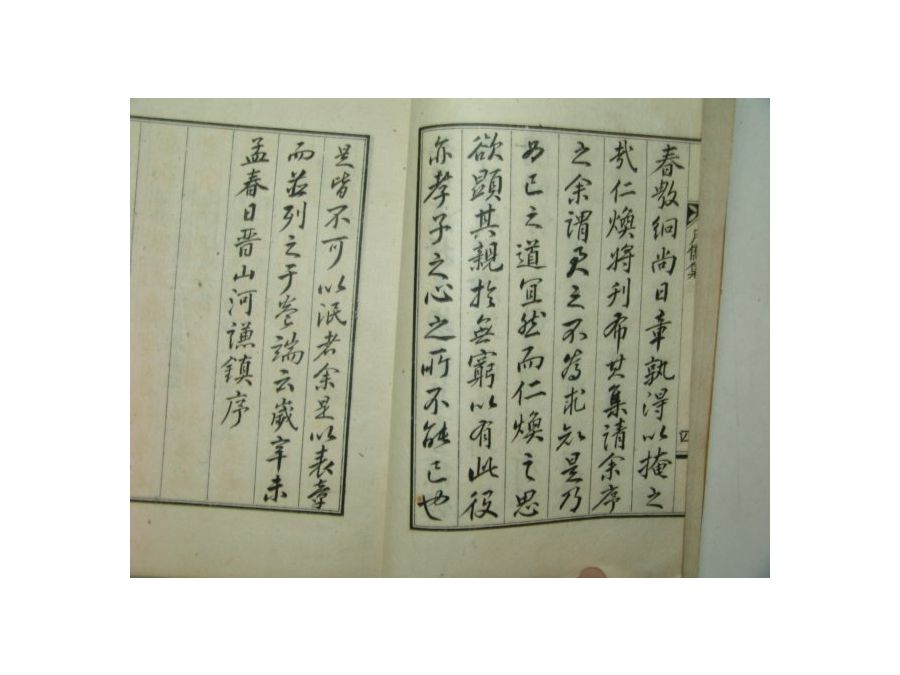 春敷絅尚日章孰得以掩之
哉仁煥將刊布其集請余序
之余謂君之不爲求知是乃
爲己之道宜然而仁煥之思
欲顯其親於無窮以有此役
亦孝子之心之所不能已也
是皆不可以泯者余是以表章
而並列之于卷端云歲辛未
孟春日晋山河謙鎮序